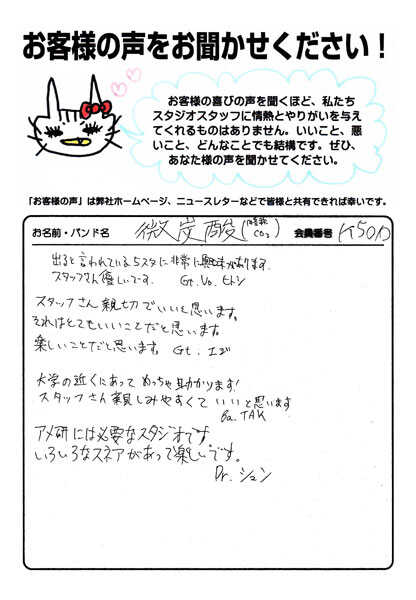 お客様の声をお聞かせください！
お客様の喜びの声を聞くほど、私たち
スタジオスタッフに情熱とやりがいを与え
てくれるものはありません。いいこと、悪
いこと、どんなことでも結構です。ぜひ、
あなた様の声を聞かせてください。
「お客様の声」は弊社ホームページ、ニュースレターなどで皆様と共有できれば幸いです。
お名前・バンド名 微炭酸 CO₂ 会員番号
出ると言われている5スタに非常に興味があります。
スタッフさん優しいです。 Gt.Vo. ヒトシ
スタッフさん親切でいいと思います。
それはとてもいいことだと思います。
楽しいことだと思います。 Gt.
大学の近くにあって めっちゃ助かります！
スタッフさん親しみやすくて いいと思います
Ba. TAK
アメ研には必要なスタジオです
いろいろなスネアがあって楽しいです。
Dr. ション